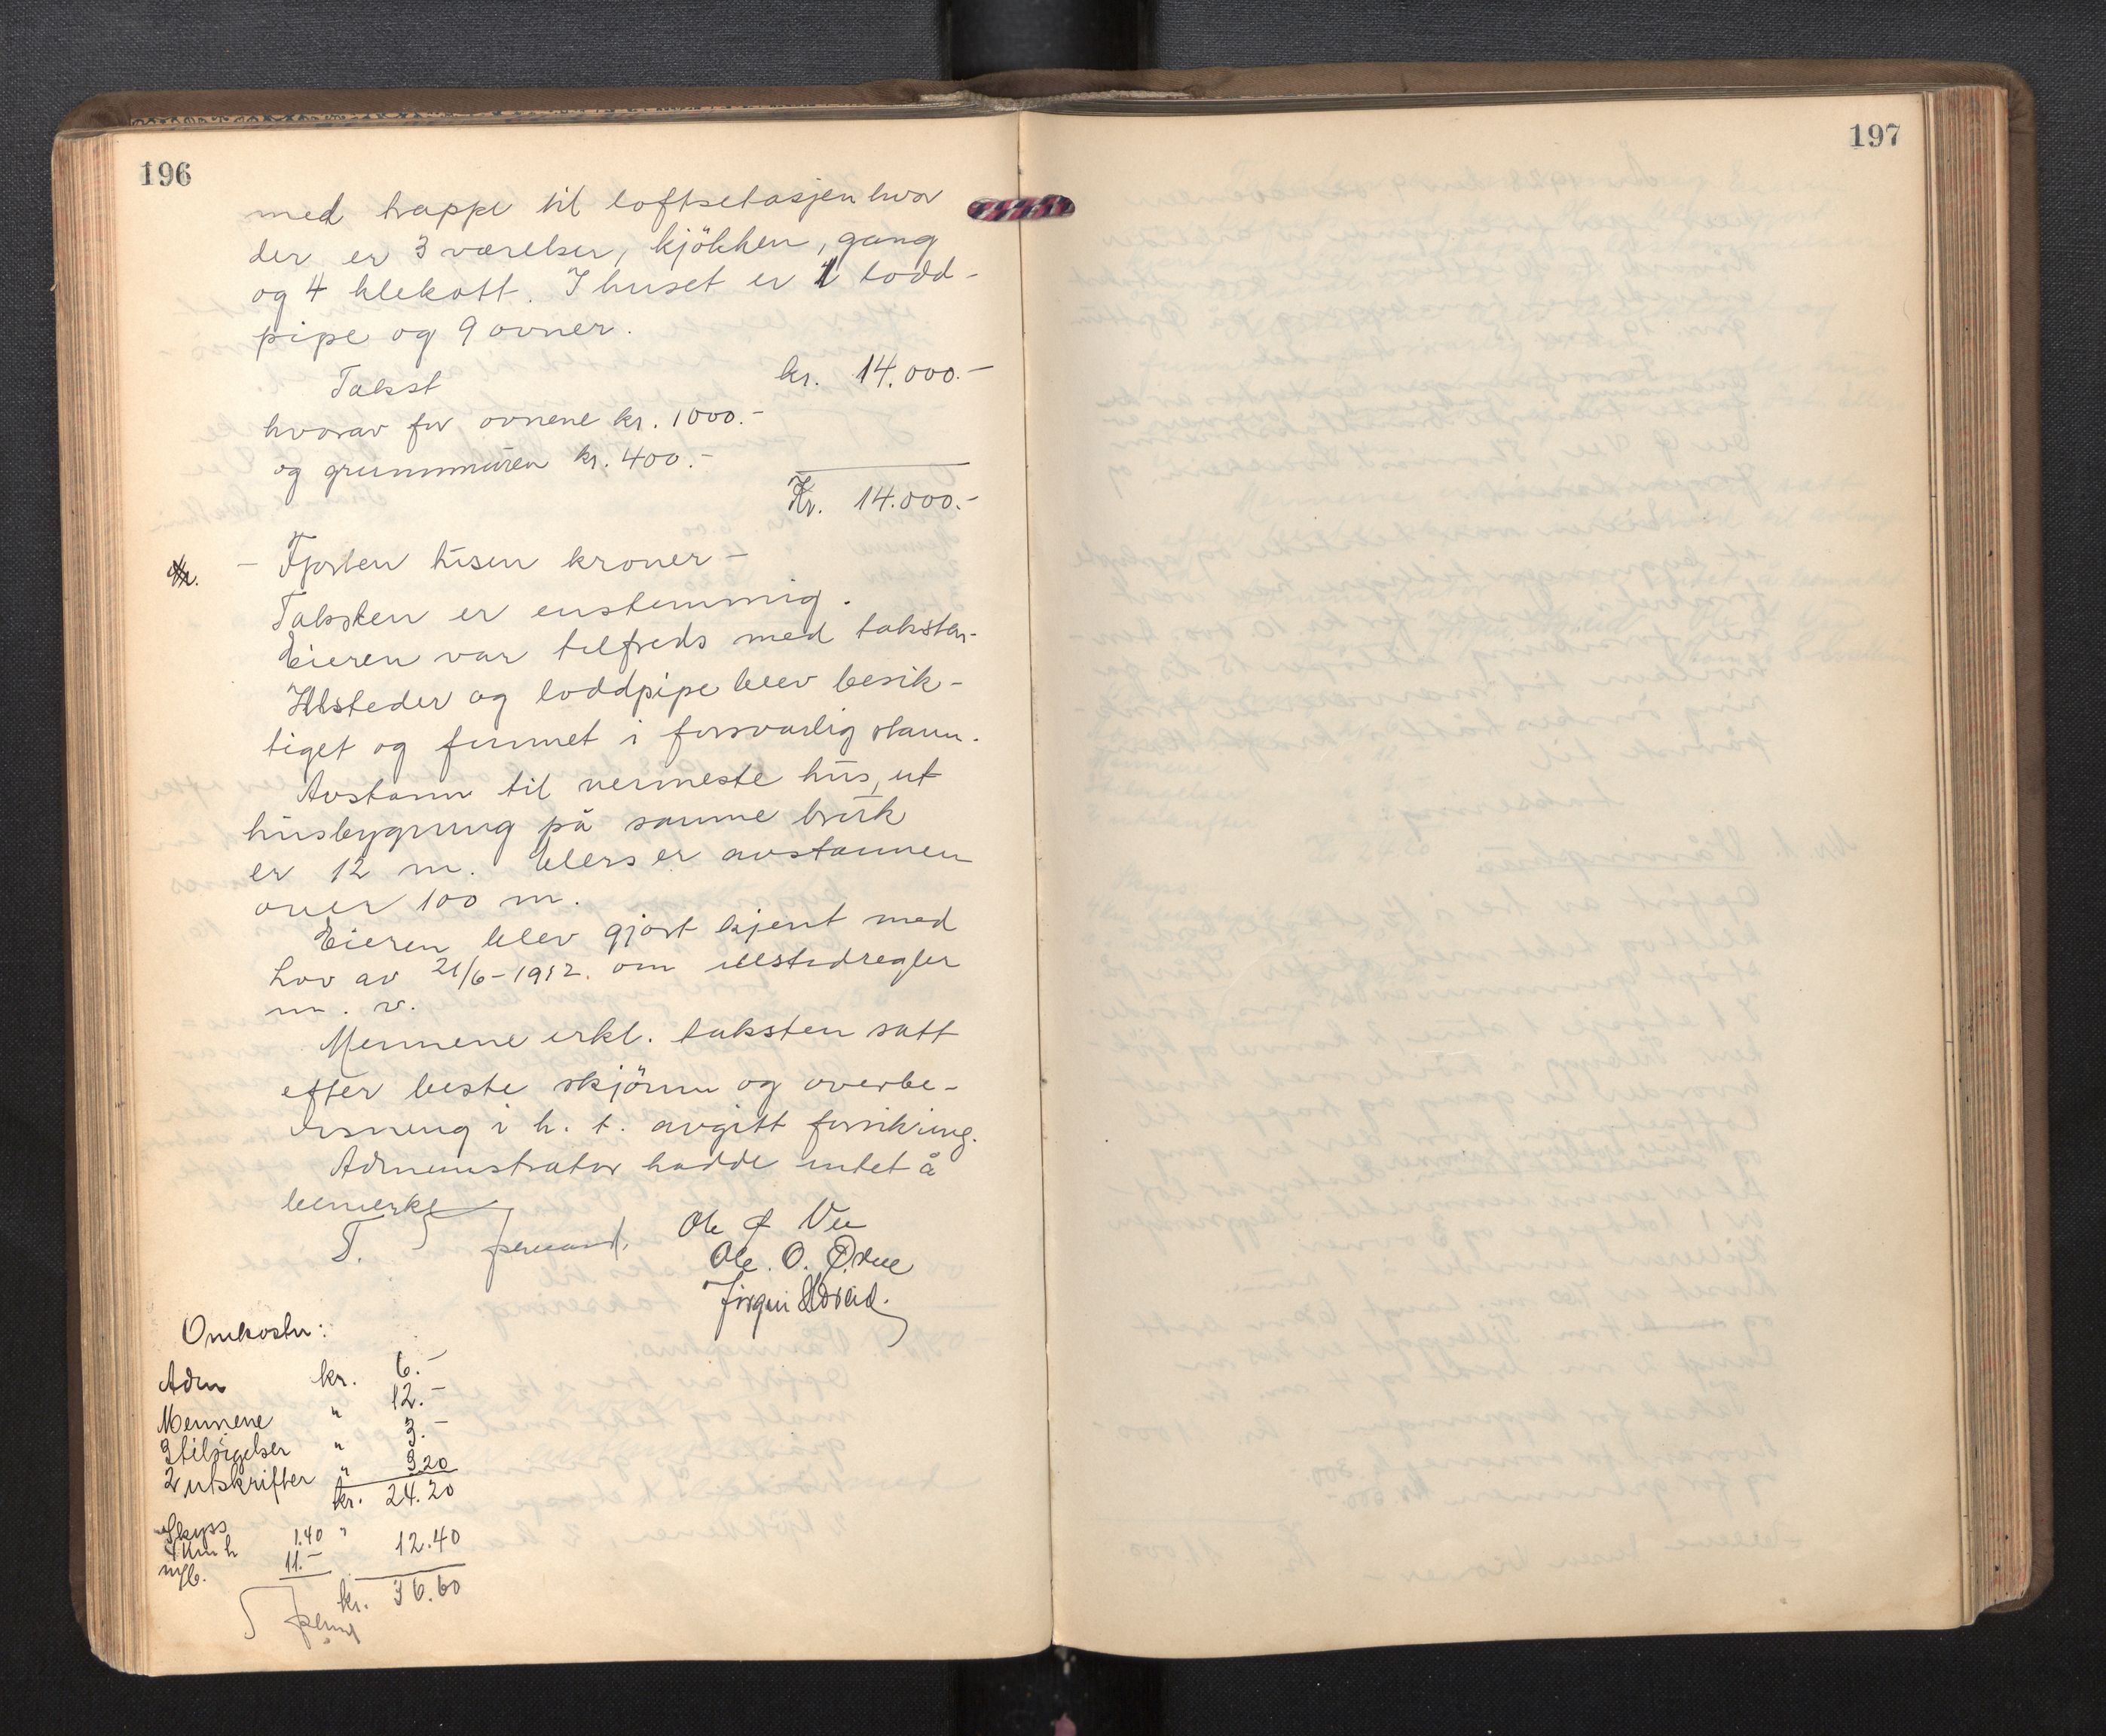 196
med trappe til loftsetasjen hvor
der er 3 værelser, kjökken, gang
og 4 klekott. I huset er 1 lodd-
pipe og 9 ovner.
Takst kr. 14.000.-
hvorav for ovnene kr. 1000.-
og grunnmuren kr. 400.-
Kr. 14.000.-
- Fjorten tusen kroner -
Taksten er enstemmig.
Eieren var tilfreds med taksten.
Illsteder og loddpipe blev besik-
tiget og funnet i forsvarlig stann.
Avstann til nermeste hus, ut
husbygning på samme bruk
er 12 m. Ellers er avstannen
over 100 m.
Eieren blev gjort kjent med
Lov av 21/6-1912. om illstedregler
m. v.
Mennene erkl. taksten satt
efter beste skjönn og overbe-
visning i h. t. avgitt forsikring.
Administrator hadde intet å
bemerke
Ole Vee
Ole. O.
Jörgen
Omkostn:
Adm kr. 6.-
Mennene " 12.-
3 tilsigelser " 3.-
2 utskrifter " 3.20
kr. 24.20
Skyss
4 km h 1.40 " 12.40
mfl. 11.-
kr. 36.60
197